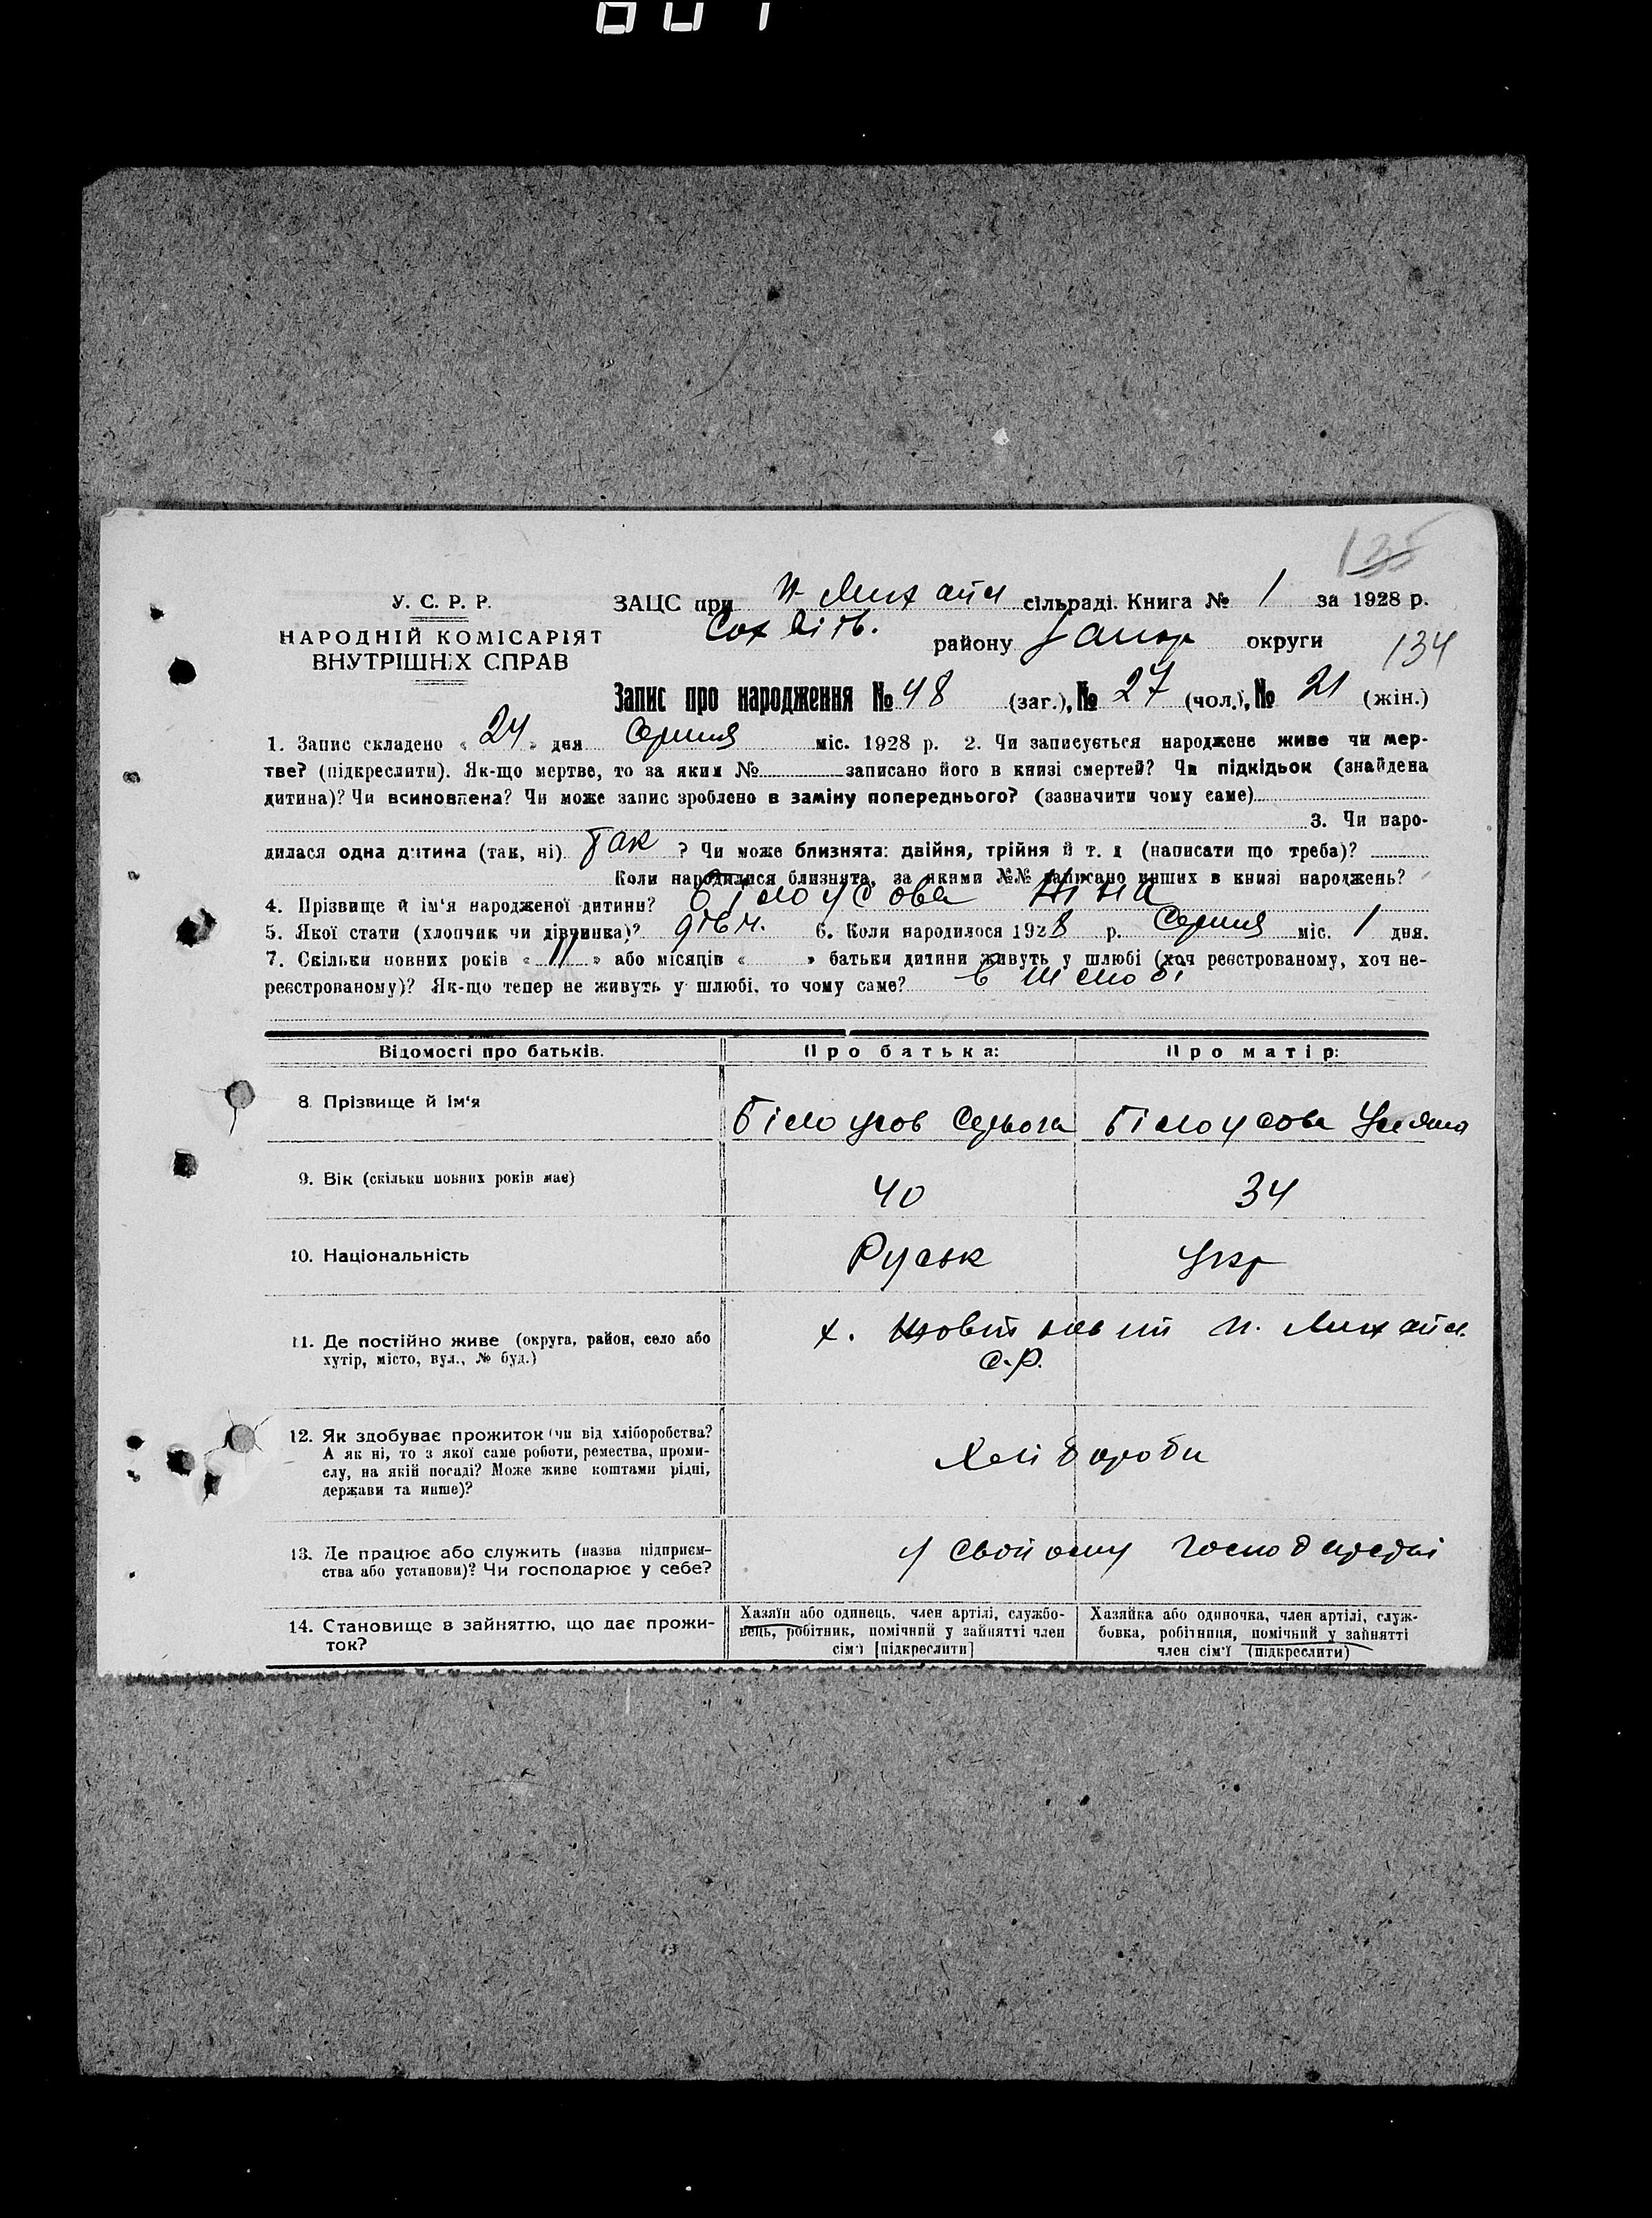 135
У. С. Р. Р.
НАРОДНІЙ КОМІСАРІЯТ
ВНУТРІШНІХ СПРАВ
ЗАЦС при Н-Михайл сільраді. Книга № 1 за 1928 р.
району Запор округи
134
Запис про народження № 48 (заг.), № 27 (чол.), № 21 (жін.)
1. Запис складено « 24 » дня Серпня міс. 1928 р. 2. Чи записується народжене живе чи мер-
тве? (підкреслити). Як-що мертве, то за яким № записано його в книзі смертей? Чи підкідьок (знайдена
дитина)? Чи всиновлена? Чи може запис зроблено в заміну попереднього? (зазначити чому саме)
3. Чи наро-
дилася одна дитина (так, ні) Так ? Чи може близнята: двійня, трійня й т. д (написати що треба)?
Коли народилися близнята, за якими №№ записано инших в книзі народжень?
4. Прізвище й ім'я народженої дитини? Білоусова Ніна
5. Якої стати (хлопчик чи дівчинка)? дівч. 6. Коли народилося 1928 р. Серпня міс. 1 дня.
7. Скільки повних років « 11 » або місяців « » батьки дитини живуть у шлюбі (хоч реєстрованому, хоч не-
реєстрованому)? Як-що тепер не живуть у шлюбі, то чому саме? в шлюбі
Відомості про батьків. Про батька: Про матір:
8. Прізвище й ім'я Білоусов Серьога Білоусова Уляна
9. Вік (скільки повних років має) 40 34
10. Національність Руськ Укр
11. Де постійно живе (округа, район, село або
хутір, місто, вул., № буд.)
х. Н. Михайл.
С.Р.
12. Як здобуває прожиток (чи від хліборобства?
А як ні, то з якої саме роботи, ремества, проми-
слу, на якій посаді? Може живе коштами рідні,
держави та инше)?
Хлібороби
13. Де працює або служить (назва підприєм-
ства або установи)? Чи господарює у себе?
у свойому господарстві
14. Становище в зайняттю, що дає прожи-
ток?
Хазяїн або одинець, член артілі, службо-
вець, робітник, помічний у зайнятті член
сім'ї [підкреслити]
Хазяйка або одиночка, член артілі, служ-
бовка, робітниця, помічний у зайнятті
член сім'ї (підкреслити)